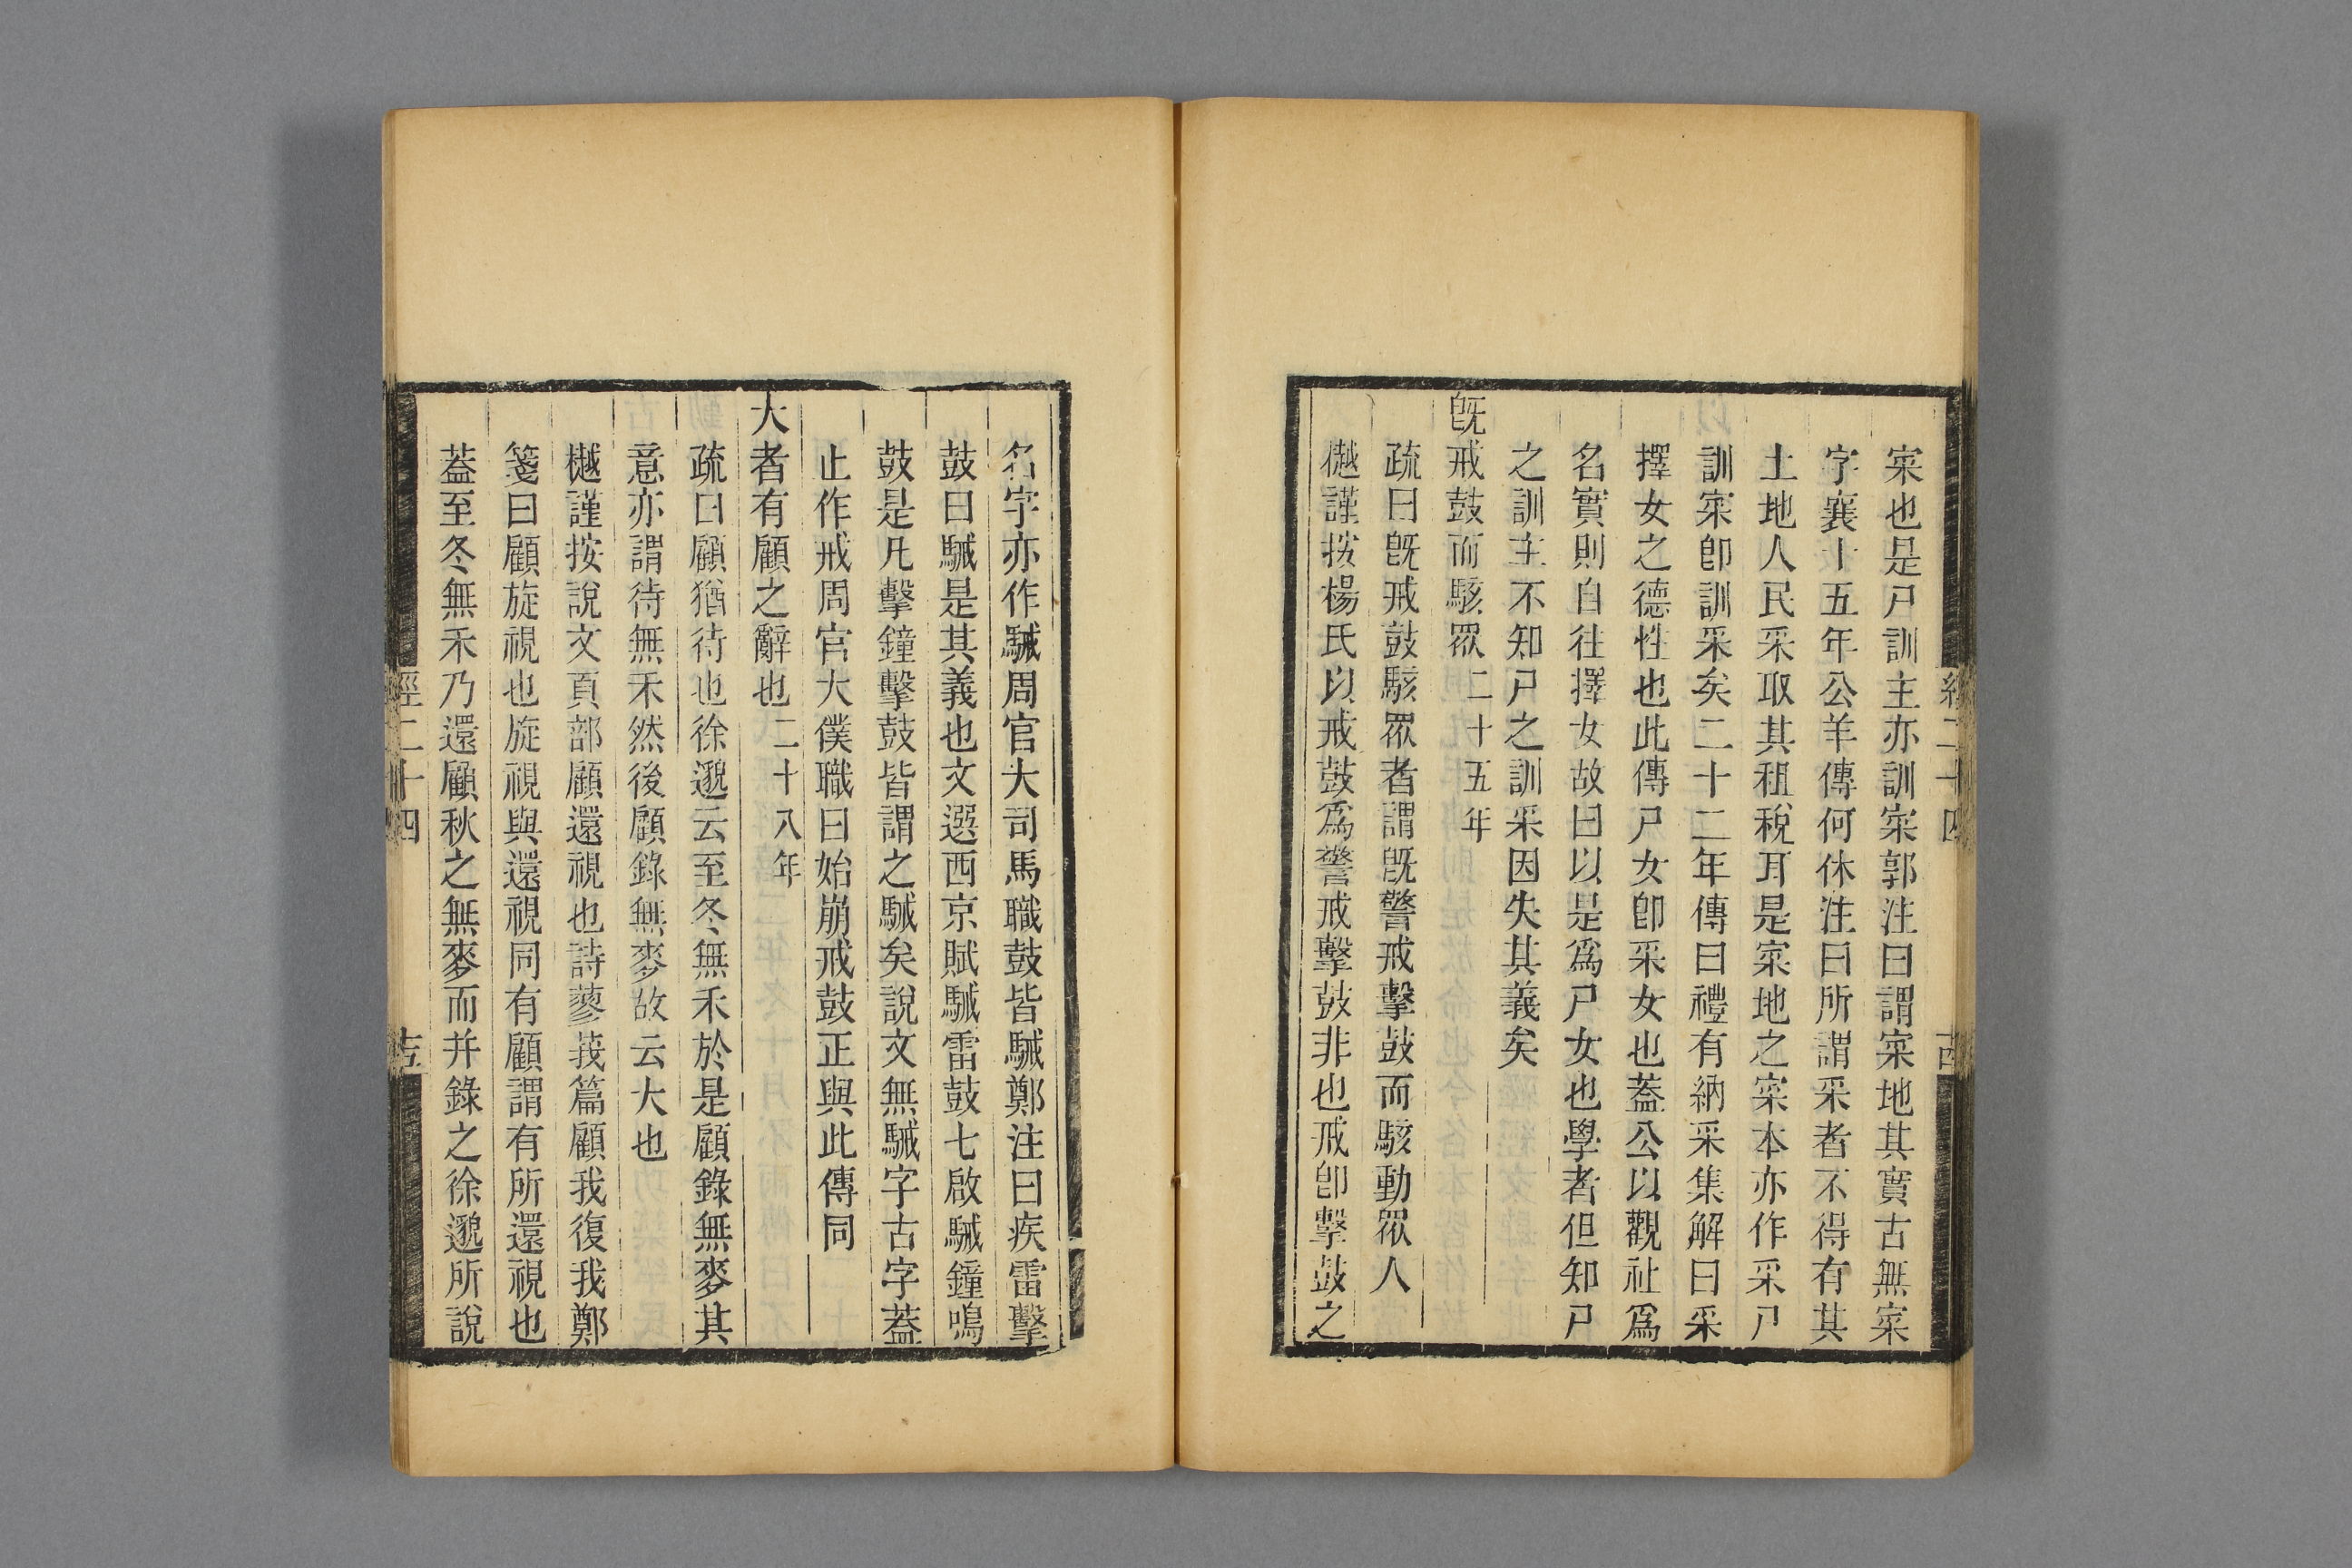 寀也是尸訓主亦訓寀郭注曰謂寀地其實古無寀
字襄十五年公羊傳何休注曰所謂采者不得有其
土地人民采取其租稅耳是寀地之寀本亦作采尸
訓寀卽訓采矣二十二年傳曰禮有納采集解曰采
擇女之德性也此傳尸女卽采女也葢公以觀社爲
名實則自往擇女故曰以是爲尸女也學者但知尸
之訓主不知尸之訓采因失其義矣
旣戒鼓而駭眾二十五年
疏曰旣戒鼓駭眾者謂旣警戒擊鼓而駭動眾人
樾謹按楊氏以戒鼓爲警戒擊鼓非也戒卽擊鼓之
名字亦作駴周官大司馬職鼓皆駴鄭注曰疾雷擊
鼓曰駴是其義也文選西京賦駴雷鼓七啟駴鐘鳴
鼓是凡擊鐘擊鼓皆謂之駴矣說文無駴字古字葢
止作戒周官大僕職曰始崩戒鼓正與此傳同
大者有顧之辭也二十八年
疏曰顧猶待也徐邈云至冬無禾於是顧錄無麥其
意亦謂待無禾然後顧錄無麥故云大也
樾謹按說文頁部顧還視也詩蓼莪篇顧我復我鄭
箋曰顧旋視也旋視與還視同有顧謂有所還視也
葢至冬無禾乃還顧秋之無麥而并錄之徐邈所說
經二十四